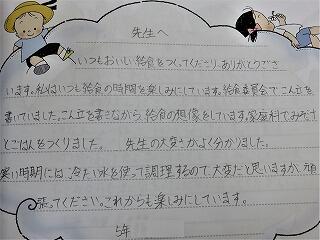 先生へ
いつもおいしい給食をつくってくださり、ありがとうござ
います。私はいつも給食の時間を楽しみにしています。給食委員会でこん立を
書いていました。こん立を書きながら、給食の想像をしています。家庭科でみそ汁
とごはんをつくりました。 先生の大変さがよく分かりました。
寒い時期には、冷たい水を使って調理するので、大変だと思いますが、頑
張ってください。これからも楽しみにしています。
5年